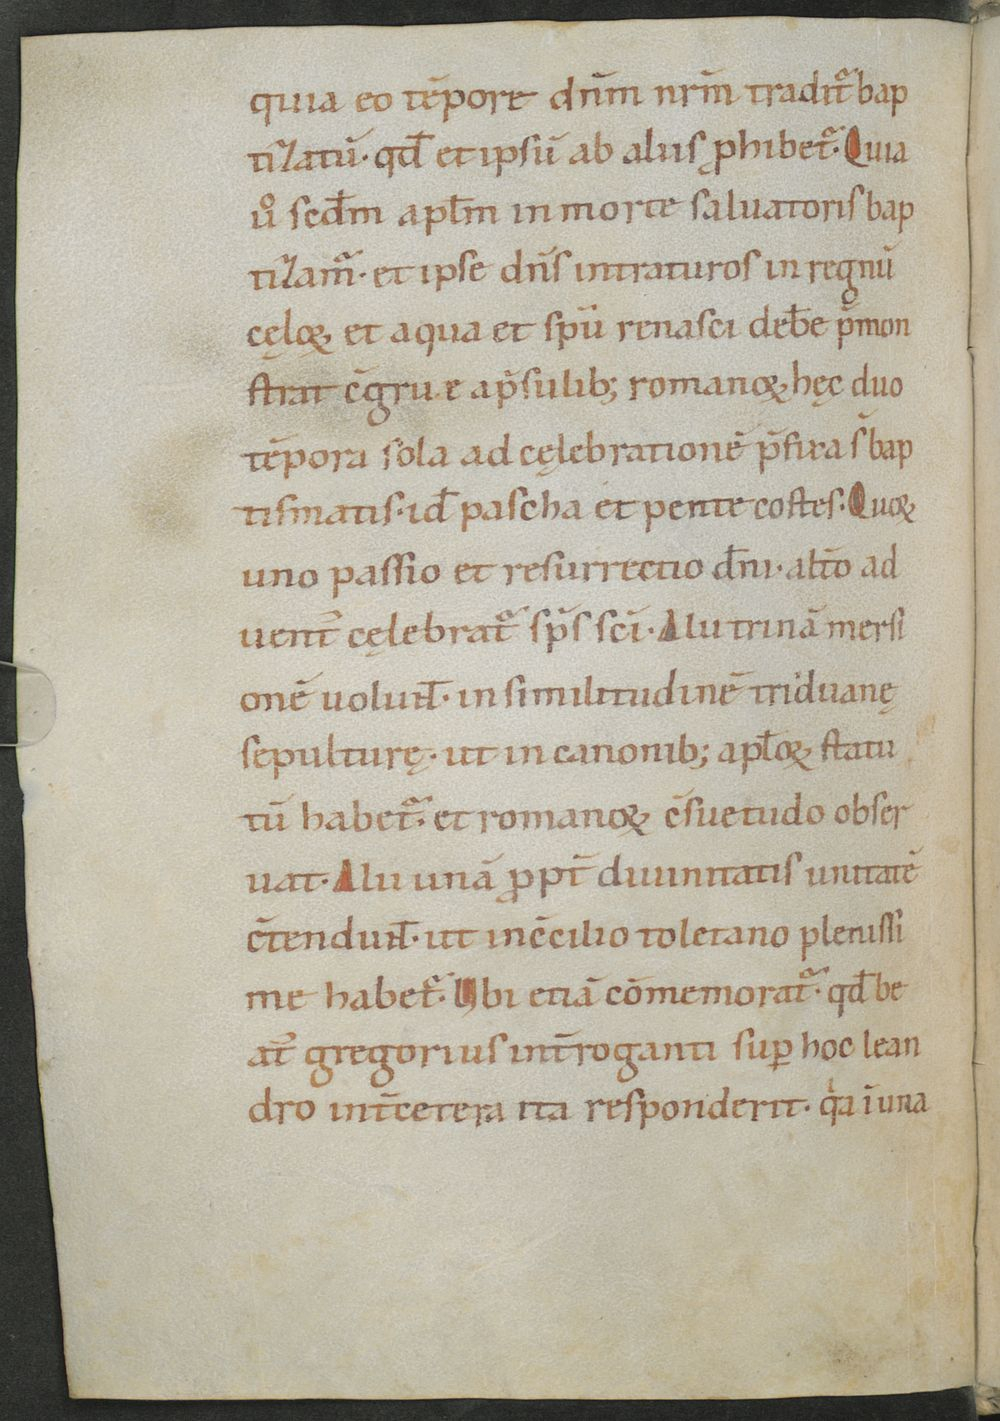 quia eo tēpore dn̄m nr̄m tradit᷑ bap
tiZatū· qd̄ et ipsū ab aliis ꝓhibet᷑· Quia
ůo scd̄m apl̄m in morte saluatoris bap
tiZam᷑· et ipse dn̄s intraturos in regnū
cęloꝝ et aqua et spū renasci deb̄e p̄mon
strat c̄grue ap̄sulib; romanoꝝ hęc duo
tēpora sola ad cęlebrationē p̄fixa s̄ bap
tismatis· id̄ pascha et pentecostes· Quoꝝ
uno passio et resurrectio dn̄i· alt̄o ad
uent᷒ cęlebrat᷑ sp̄s sc̄i· Alii trinā mersi
onē uoluɴt̄· in similitudinē triduanę
sepulturę· ut in canonib; apl̄oꝝ statu
tū habet᷑· et romanoꝝ c̄suetudo obser
uat· Alii unā ꝓpt̄ diuinitatis unitatē
c̄tenduɴt̄· ut in c̄cilio toletano plenissi
me habet᷑· Ubi etiā cōmemorat᷑· qd̄ be
at᷒ gregorius int̄roganti suꝑ hoc lean
dro int̄ cetera ita responderit· qͥa ī una